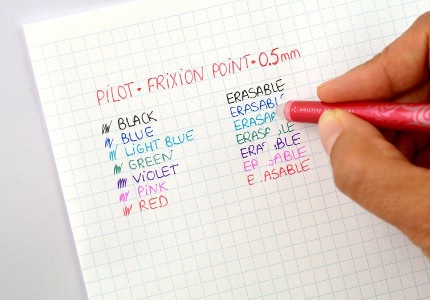 PILOT - FRIXION POINT - 0.5mm
BLACK
BLUE
LIGHT BLUE
GREEN
VIOLET
PINK
RED
ERASABLE
ERASABL
ERASA
ERASA LE
ERA ABLE
ER SABLE
E ASABLE